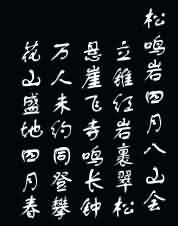 松鸣岩四月八山会
立锥红岩裹翠松
悬崖飞寺鸣长钟
万人未约同登攀
花山盛地四月春